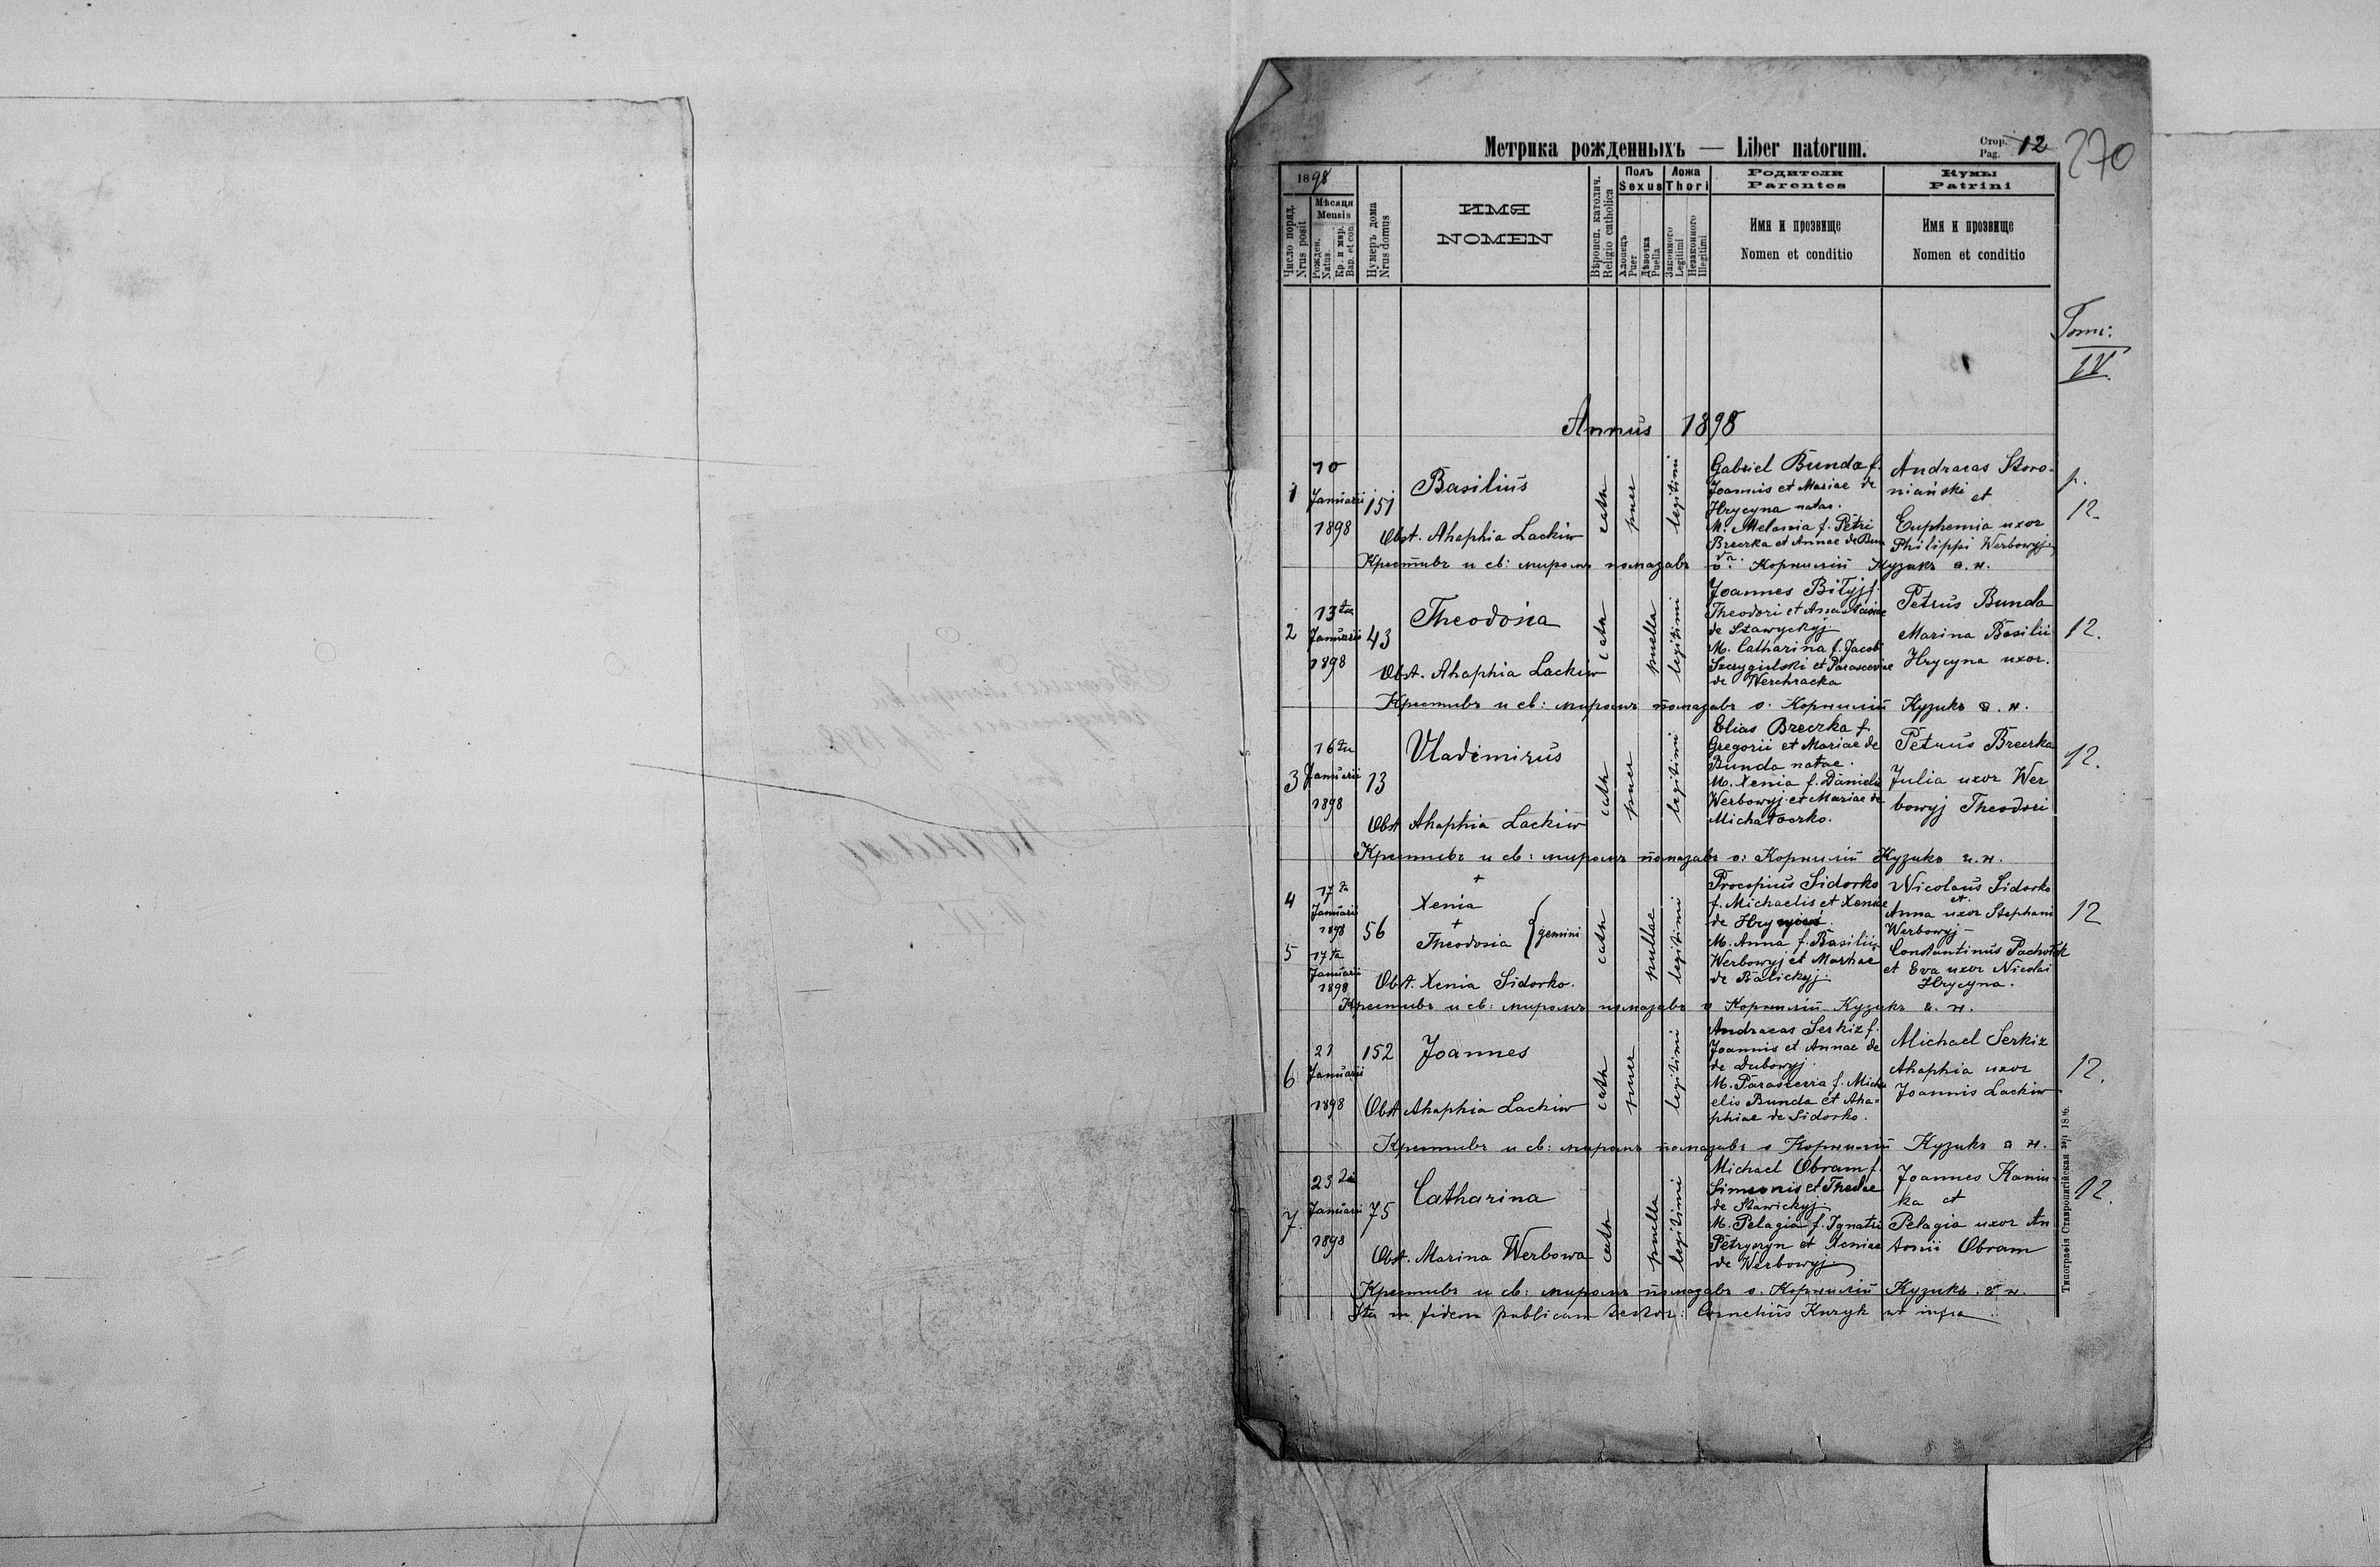 Метрика рожденныхъ — Liber natorum.
Стор. Pag. 12
270
1898
Число поряд. Nrus posit
Мѣсяця Mensis
Рожден. Natus
Кр. и мѵр. Bap. et con.
Нумеръ дома Nrus domus
ИМЯ
NOMEN
Вѣроисп. католич. Religio catholica
Полъ Sexus
Хлопецъ Puer
Дѣвочка Puella
Ложа Thori
Законного Legitimi
Незаконного Illegitimi
Родители
Parentes
Имя и прозвище
Nomen et conditio
Кумы
Patrini
Имя и прозвище
Nomen et conditio
Tom:
IV.
Annus 1898
1
10 Januarii 1898
151
Basilius
Obst. Ahaphia Lackiw
cath
puer
legitimi
Gabriel Bunda f.
Joannis et Mariae de
Hrycyna natae.
M. Melania f. Petri
Breczka et Annae de Bun
da.
Andraeas Storo-
niański et
Euphemia uxor
Philippi Werbowyj
p.
12.
Крестивъ и св: миромъ помазавъ о. Корнилій Кузикъ а. н.
2
13ta Januarii 1898
43
Theodosia
Obst. Ahaphia Lackiw
cath
puella
legitimi
Joannes Biłyj f.
Theodori et Anastasiae
de Stawyckyj
M. Catharina f. Jacob
Szczygielski et Parascevae
de Werchracka
Petrus Bunda
Marina Basilii
Hrycyna uxor.
12.
Крестивъ и св: миромъ помазавъ о. Корнилій Кузикъ а. н.
3
16ta Januarii 1898
13
Vladimirus
Obst Ahaphia Lackiw
cath
puer
legitimi
Elias Breczka f.
Gregorii et Mariae de
Bunda natae.
M. Xenia f. Danielis
Werbowyj et Mariae de
Michałoczko.
Petrus Breczka
Julia uxor Wer
bowyj Theodori
12.
Крестивъ и св: миромъ помазавъ о: Корнилій Кузикъ а. н.
4
17ta Januarii 1898
5
17ta Januarii 1898
56
+
Xenia
+
Theodosia
gemini
Obst. Xenia Sidorko.
cath
puellae
legitimi
Procopius Sidorko
f. Michaelis et Xeniae
de
M. Anna f. Basilii
Werbowyj et Marinae
de Balickyj.
Nicolaus Sidorko
et
Anna uxor Stephani
Werbowyj –
Constantinus
et Eva uxor Nicolai
Hrycyna.
12
Крестивъ и св: миромъ помазавъ о Корнилій Кузикъ а. н.
6
21 Januarii 1898
152
Joannes
Obst Ahaphia Lackiw
cath
puer
legitimi
Andraeas Serkiz f.
Joannis et Annae de
de Dubowyj
M. Parascevia f. Micha
elis Bunda et Aha=
phiae de Sidorko.
Michael Serkiz
Ahaphia uxor
Joannis Lackiw
12.
Крестивъ и св: миромъ помазавъ о Корнилій Кузикъ а н.
7
23tia Januarii 1898
75
Catharina
Obst. Marina Werbowa
cath
puella
legitimi
Michael Obram f.
Simeonis et Theclae
de Stawickyj
M. Pelagia f. Ignatii
Petryszyn et Xeniae
de Werbowyj
Joannes Kamin
ka et
Pelagia uxor An
tonii Obram
12.
Крестивъ и св: миромъ помазавъ о. Корнилій Кузикъ. а н.
Ita in fidem publicam testor: Cornelius Kuzyk ut infra